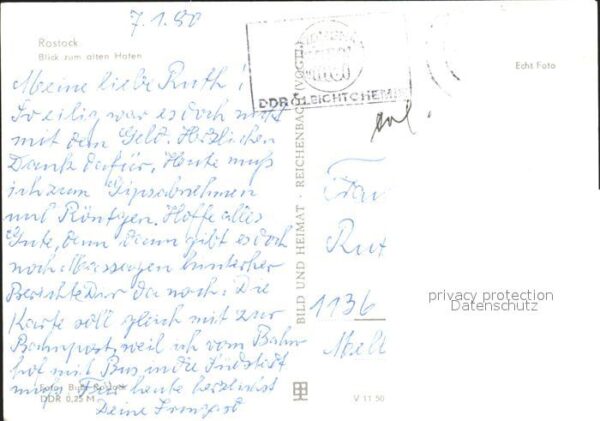 7.1.80
Rostock
Blick zum alten Hafen
Meine liebe Ruth!
So eilig war es doch nicht
mit dem Geld. Herzlichen
Dank dafür. Heute muß
ich zum Gipsabnehmen
und Röntgen. Hoffe alles
Gute, denn dann gibt es doch
noch Massagen hinterher
Berichte Dir da noch. Die
Karte soll gleich mit zur
Bahnpost, weil ich vom Bahn
hof mit Bus in die Südstadt
muß. Für heute herzlichst
Deine
Foto: Rostock
DDR 0,25 M
BILD UND HEIMAT · REICHENBACH (VOGTL)
DDR LEICHTCHEMIE
Echt Foto
Frau
Rut
1136
privacy protection
Datenschutz
V 11 50